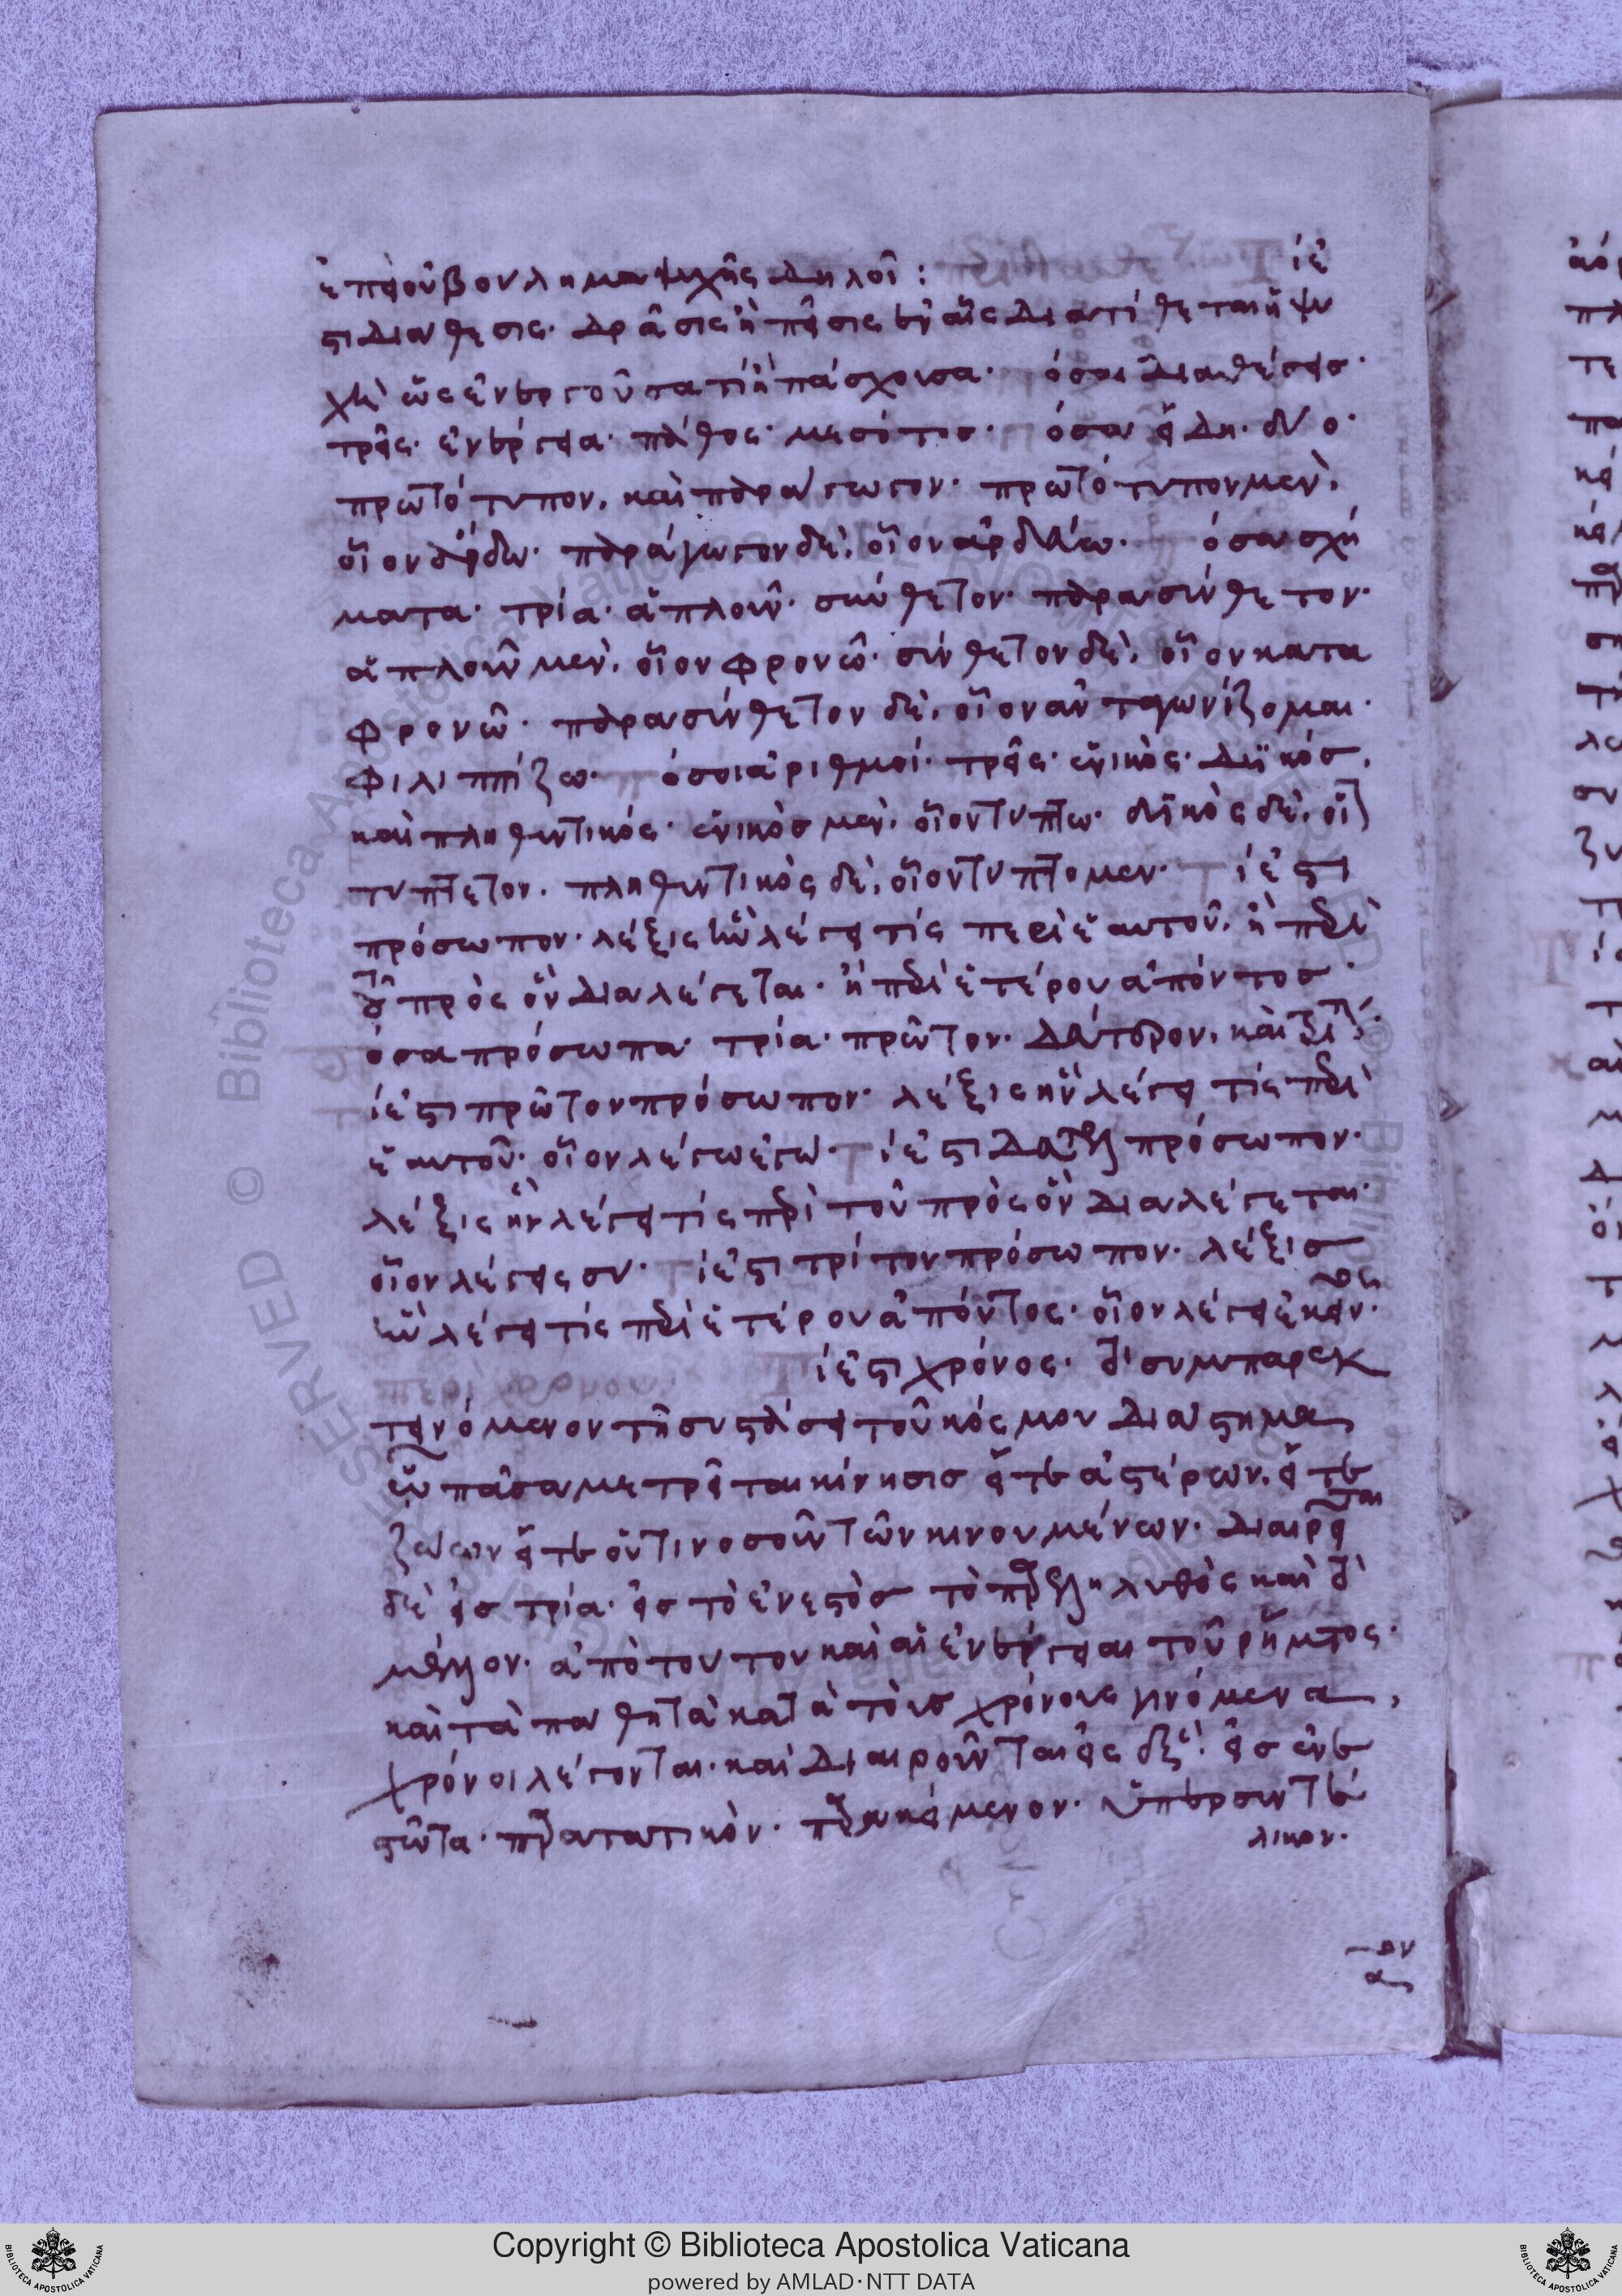 ἐπεὶ οὐ βούλημα ψυχῆς δηλοῖ: Τί ἐ
στι διάθεσις· δρᾶσις ἢ πεῖσις ἐν αἷς διατίθεται ἡ ψυ
χὴ ὡς ἐνεργοῦσα τί ἢ πάσχουσα· πόσαι διαθέσεις·
τρεῖς· ἐνέργεια· πάθος· μεσότης· πόσα εἴδη· δύο·
πρωτότυπον, καὶ παράγωγον· πρωτότυπον μὲν,
οἷον ἄρδω· παράγωγον δὲ, οἷον ἀρδεύω· πόσα σχή
ματα· τρία· ἁπλοῦν· σύνθετον· παρασύνθετον·
ἁπλοῦν μὲν, οἷον φρονῶ· σύνθετον δὲ, οἷον κατα
φρονῶ· παρασύνθετον δὲ, οἷον ἀνταγωνίζομαι·
φιλιππίζω· πόσοι ἀριθμοί· τρεῖς· ἑνικὸς· δυϊκός,
καὶ πληθυντικός· ἑνικὸς μὲν, οἷον τύπτω· δυϊκὸς δὲ, οἷον
τύπτετον· πληθυντικὸς δὲ, οἷον τύπτομεν· Τί ἐστι
πρόσωπον· λέξις ἣν λέγει τίς περὶ ἑαυτοῦ, ἢ περὶ
τοῦ πρὸς ὃν διαλέγεται· ἢ περὶ ἑτέρου ἀπόντος·
πόσα πρόσωπα· τρία· πρῶτον· δεύτερον, καὶ τρίτον·
Τί ἐστι πρῶτον πρόσωπον· λέξις ἣν λέγει τίς περὶ
ἑαυτοῦ· οἷον λέγω ἐγώ· Τί ἐστι δεύτερον πρόσωπον·
λέξις ἣν λέγει τίς περὶ τοῦ πρὸς ὃν διαλέγεται·
οἷον λέγεις συ· Τί ἐστι τρίτον πρόσωπον· λέξις
ἣν λέγει τίς περὶ ἑτέρου ἀπόντος· οἷον λέγει ἐκεῖνος·
Τί ἐστι χρόνος· τὸ συμπαρεκ
τεινόμενον τῆ συστάσει τοῦ κόσμου διάστημα
ὧ πᾶσα μετρεῖται κίνησις εἴτε ἀστέρων, εἴτε
ζώων εἴτε οὑτινοσοῦν τῶν κινουμένων· διαιρεῖται
δὲ εἰς τρία· εἰς τὸ ἐνεστὸς τὸ παρεληλυθὸς καὶ τὸ
μέλλον· ἀπὸ τούτου καὶ αἱ ἐνέργειαι τοῦ ῥήματος·
καὶ τὰ παθητὰ κατὰ τοὺς χρόνους γινόμενα,
χρόνοι λέγονται· καὶ διαιροῦνται εἰς ἕξ· εἰς ἐνε
στῶτα· παρατατικὸν· παρακείμενον· ὑπερσυντέ
λικον·